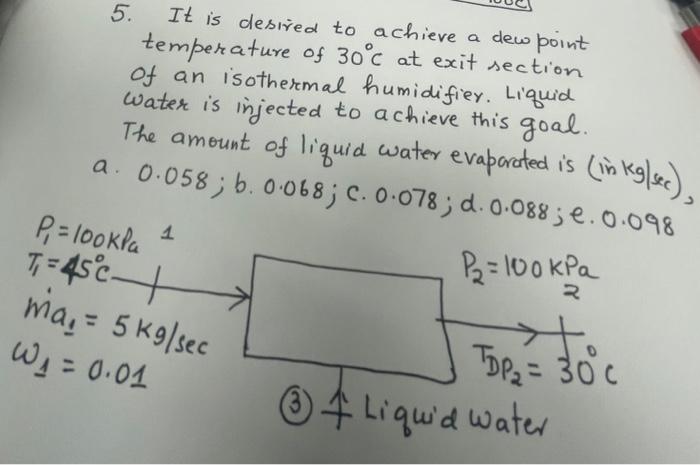 5. It is desired to achieve a dew point
temperature of 30°C at exit section
of an isothermal humidifier. Liquid
water is injected to achieve this goal.
The amount of liquid water evaporated is (in kg/sec),
a. 0.058; b. 0.068; c. 0.078; d. 0.088; e. 0.098
P₁ = 100 kPa 1
T₁ = 45°C
ṁa₁ = 5 kg/sec
W₁ = 0.01
P₂ = 100 kPa
2
T_DP₂ = 30°C
③ Liquid water